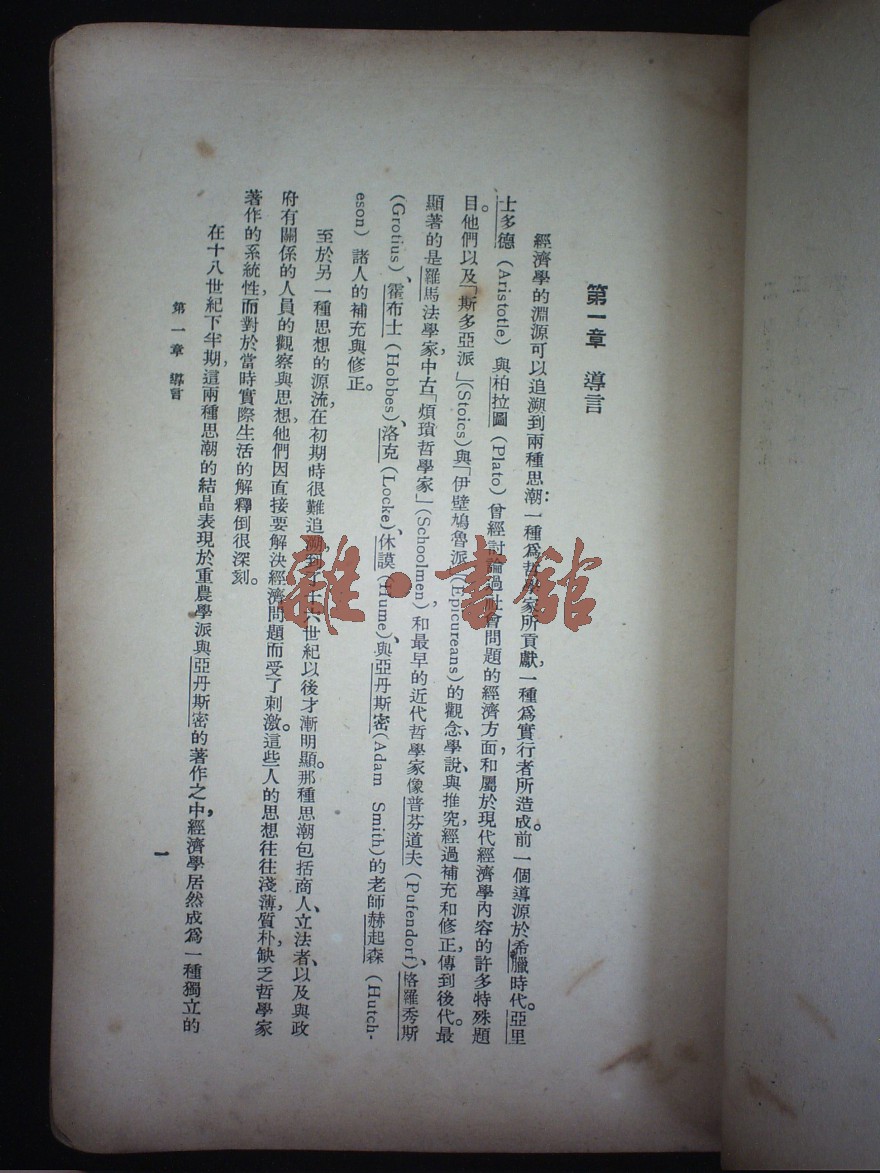 第一章 導言
經濟學的淵源可以追溯到兩種思潮：一種爲哲學家所貢獻，一種爲實行者所造成。前一個導源於希臘時代。亞里
士多德（Aristotle）與柏拉圖（Plato）曾經討論過社會問題的經濟方面，和屬於現代經濟學內容的許多特殊題
目。他們以及「斯多亞派」（Stoics）與「伊壁鳩魯派」（Epicureans）的觀念、學說、與推究，經過補充和修正，傳到後代。最
顯著的是羅馬法學家，中古「煩瑣哲學家」（Schoolmen）和最早的近代哲學家像普芬道夫（Pufendorf）、格羅秀斯
（Grotius）、霍布士（Hobbes）、洛克（Locke）、休謨（Hume）、與亞丹斯密（Adam Smith）的老師赫起森（Hutch-
eson）諸人的補充與修正。
至於另一種思想的源流，在初期時很難追溯，到了十六世紀以後才漸明顯。那種思潮包括商人、立法者、以及與政
府有關係的人員的觀察與思想，他們因直接要解決經濟問題而受了刺激。這些人的思想往往淺薄，質朴，缺乏哲學家
著作的系統性，而對於當時實際生活的解釋倒很深刻。
在十八世紀下半期，這兩種思潮的結晶表現於重農學派與亞丹斯密的著作之中，經濟學居然成爲一種獨立的
第一章 導言
一
雜·書館